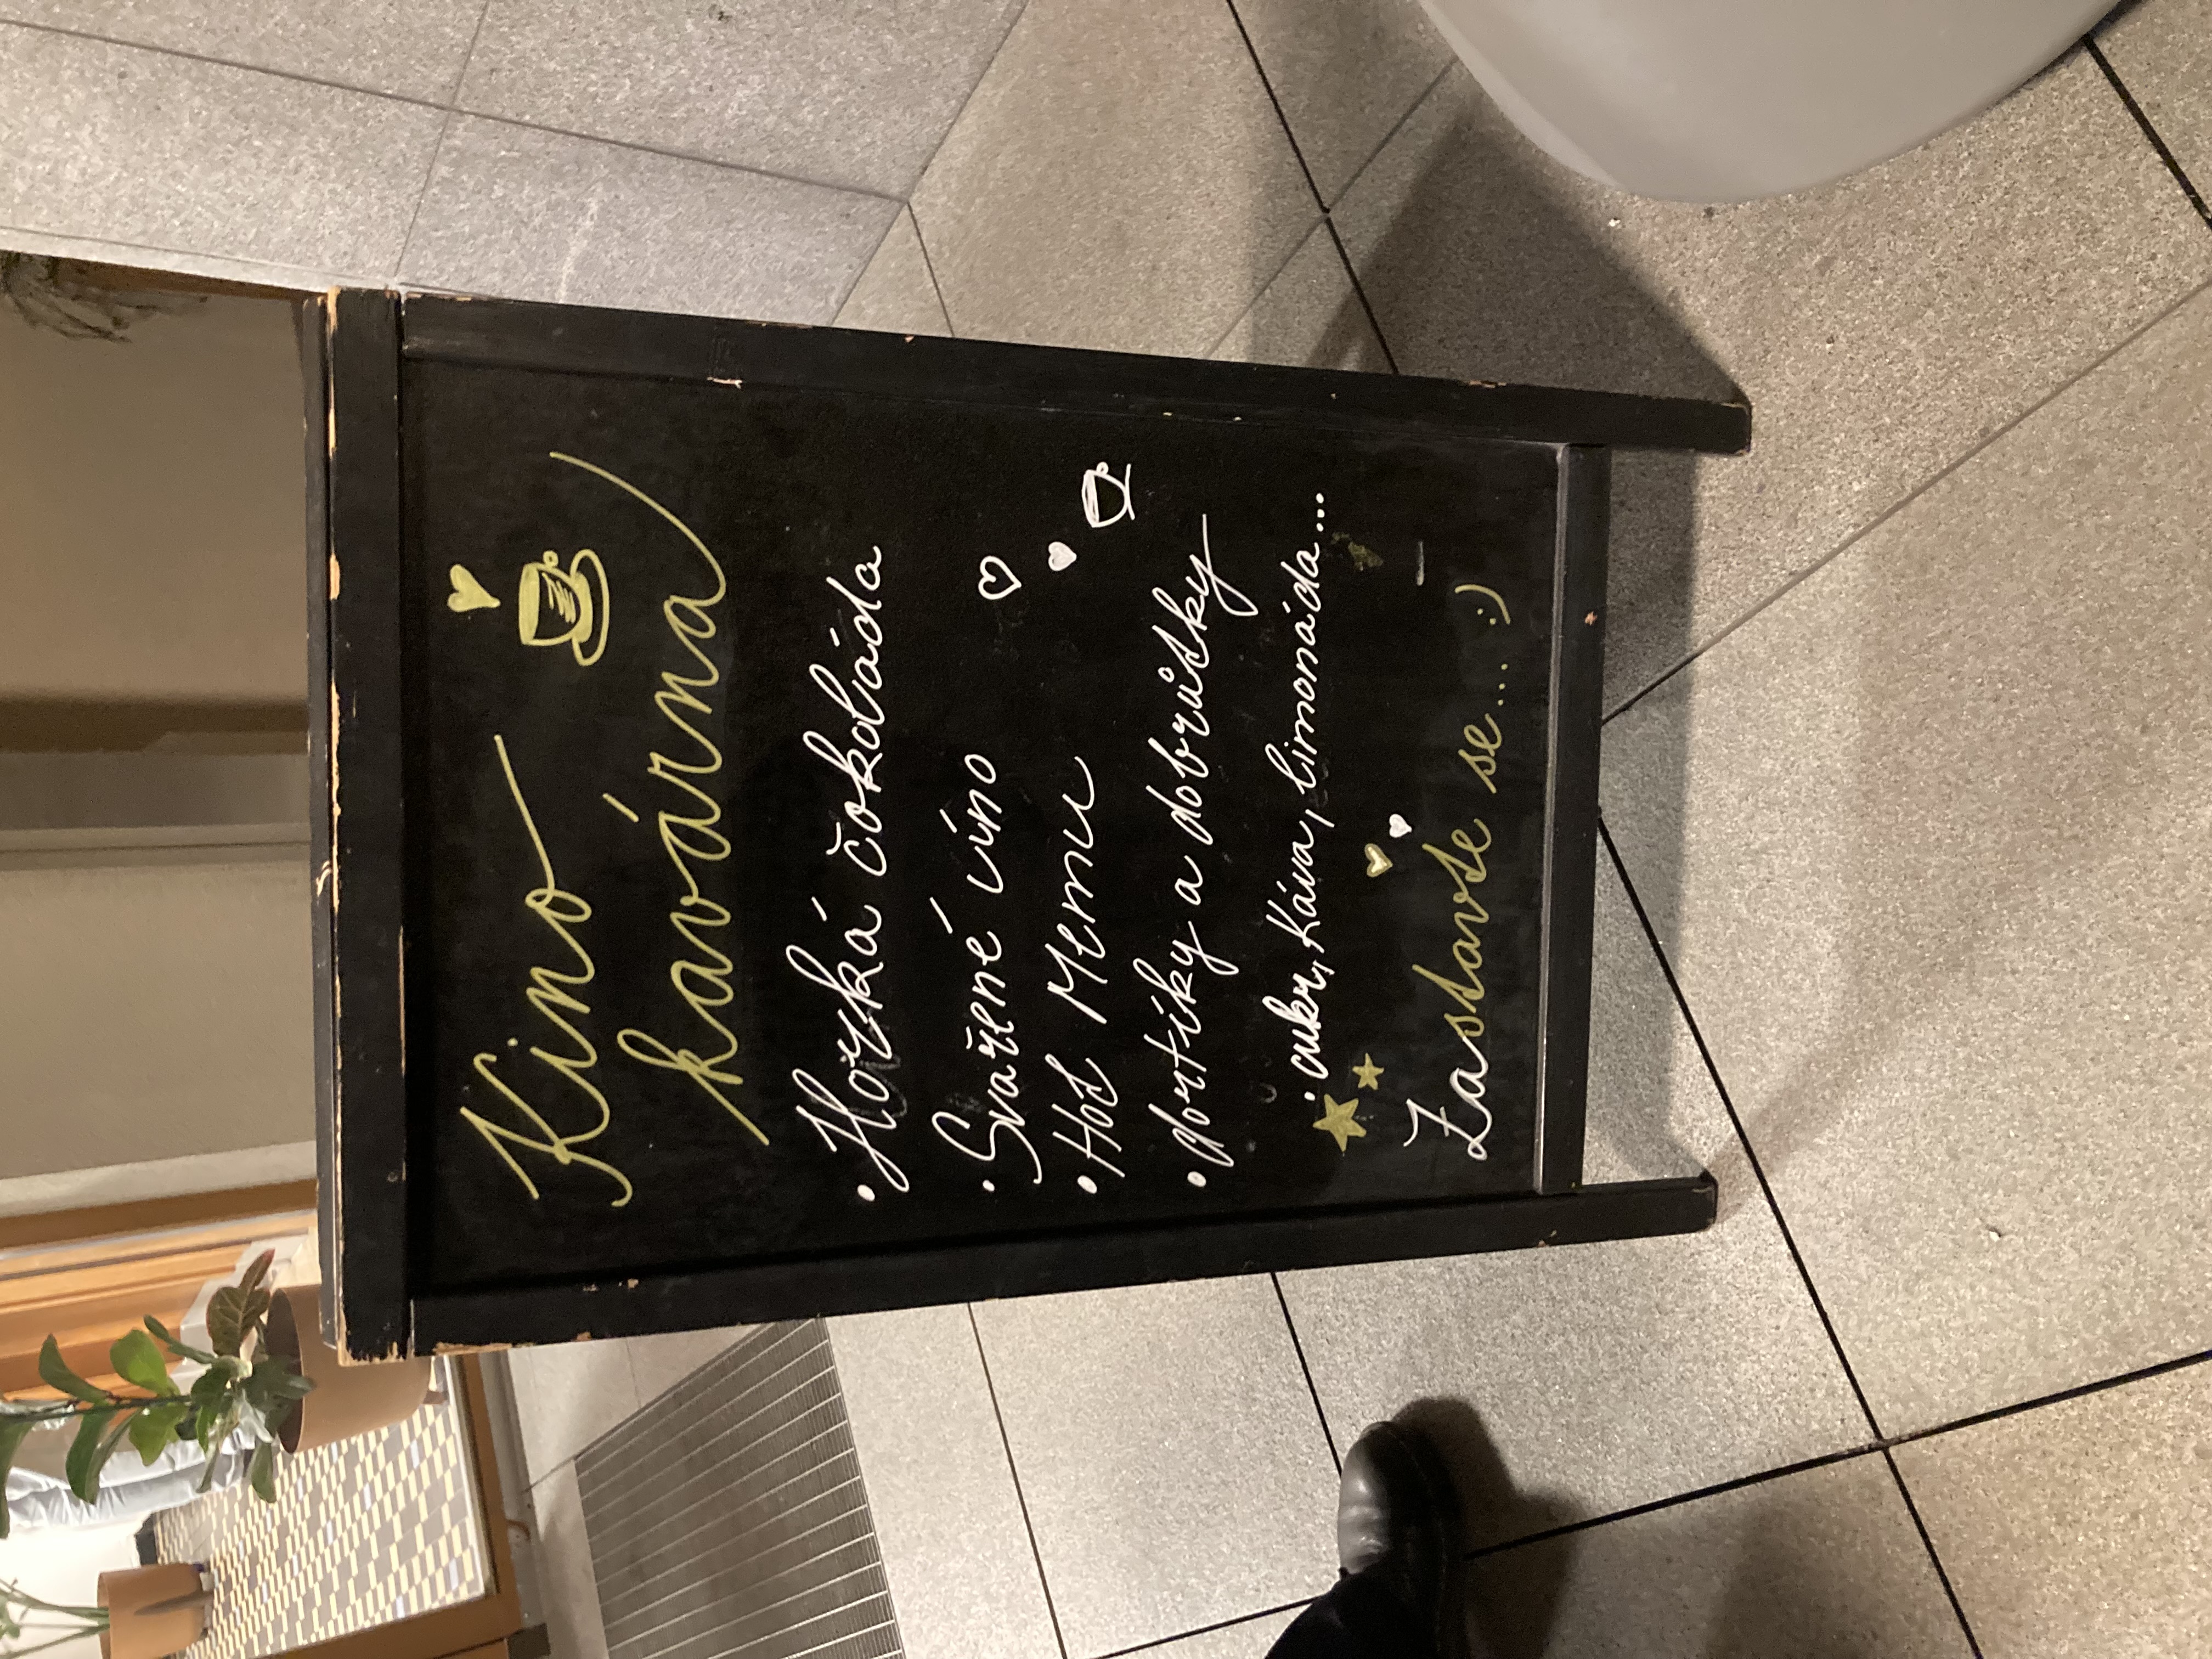 Kino
kavárna
• Horká čokoláda
• Svařené víno
• Hot Menu
• dortíky a dobrůtky
• cukr, káva, limonáda...
Zastavte se... :)